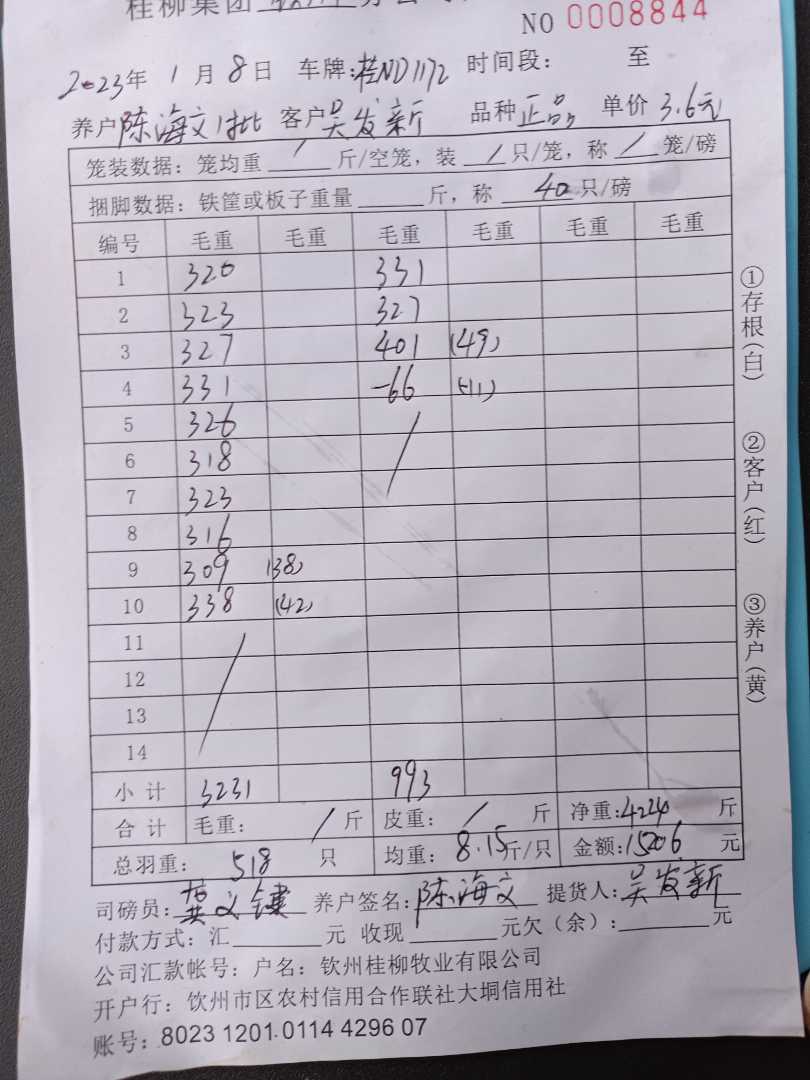 桂柳集团
NO 0008844
2023年 1月8日 车牌:桂ND1172 时间段: 至
养户陈海文1批 客户吴发新 品种正品 单价3.6元
笼装数据: 笼均重 / 斤/空笼, 装 / 只/笼, 称 / 笼/磅
捆脚数据: 铁筐或板子重量 斤, 称 40只/磅
编号 毛重 毛重 毛重 毛重 毛重 毛重
1 320 331
2 323 327
3 327 401 (49)
4 331 -66 (-11)
5 326 /
6 318
7 323
8 316
9 309 (38)
10 338 (42)
11 /
12
13
14
小计 3231 993
合计 毛重: / 斤 皮重: / 斤 净重:4224 斤
总羽重: 518 只 均重: 8.15斤/只 金额:15206 元
司磅员: 文键 养户签名: 陈海文 提货人: 吴发新
付款方式: 汇 元 收现 元欠(余): 元
公司汇款帐号: 户名: 钦州桂柳牧业有限公司
开户行: 钦州市区农村信用合作联社大垌信用社
账号: 8023 1201 0114 4296 07
①存根(白)
②客户(红)
③养户(黄)